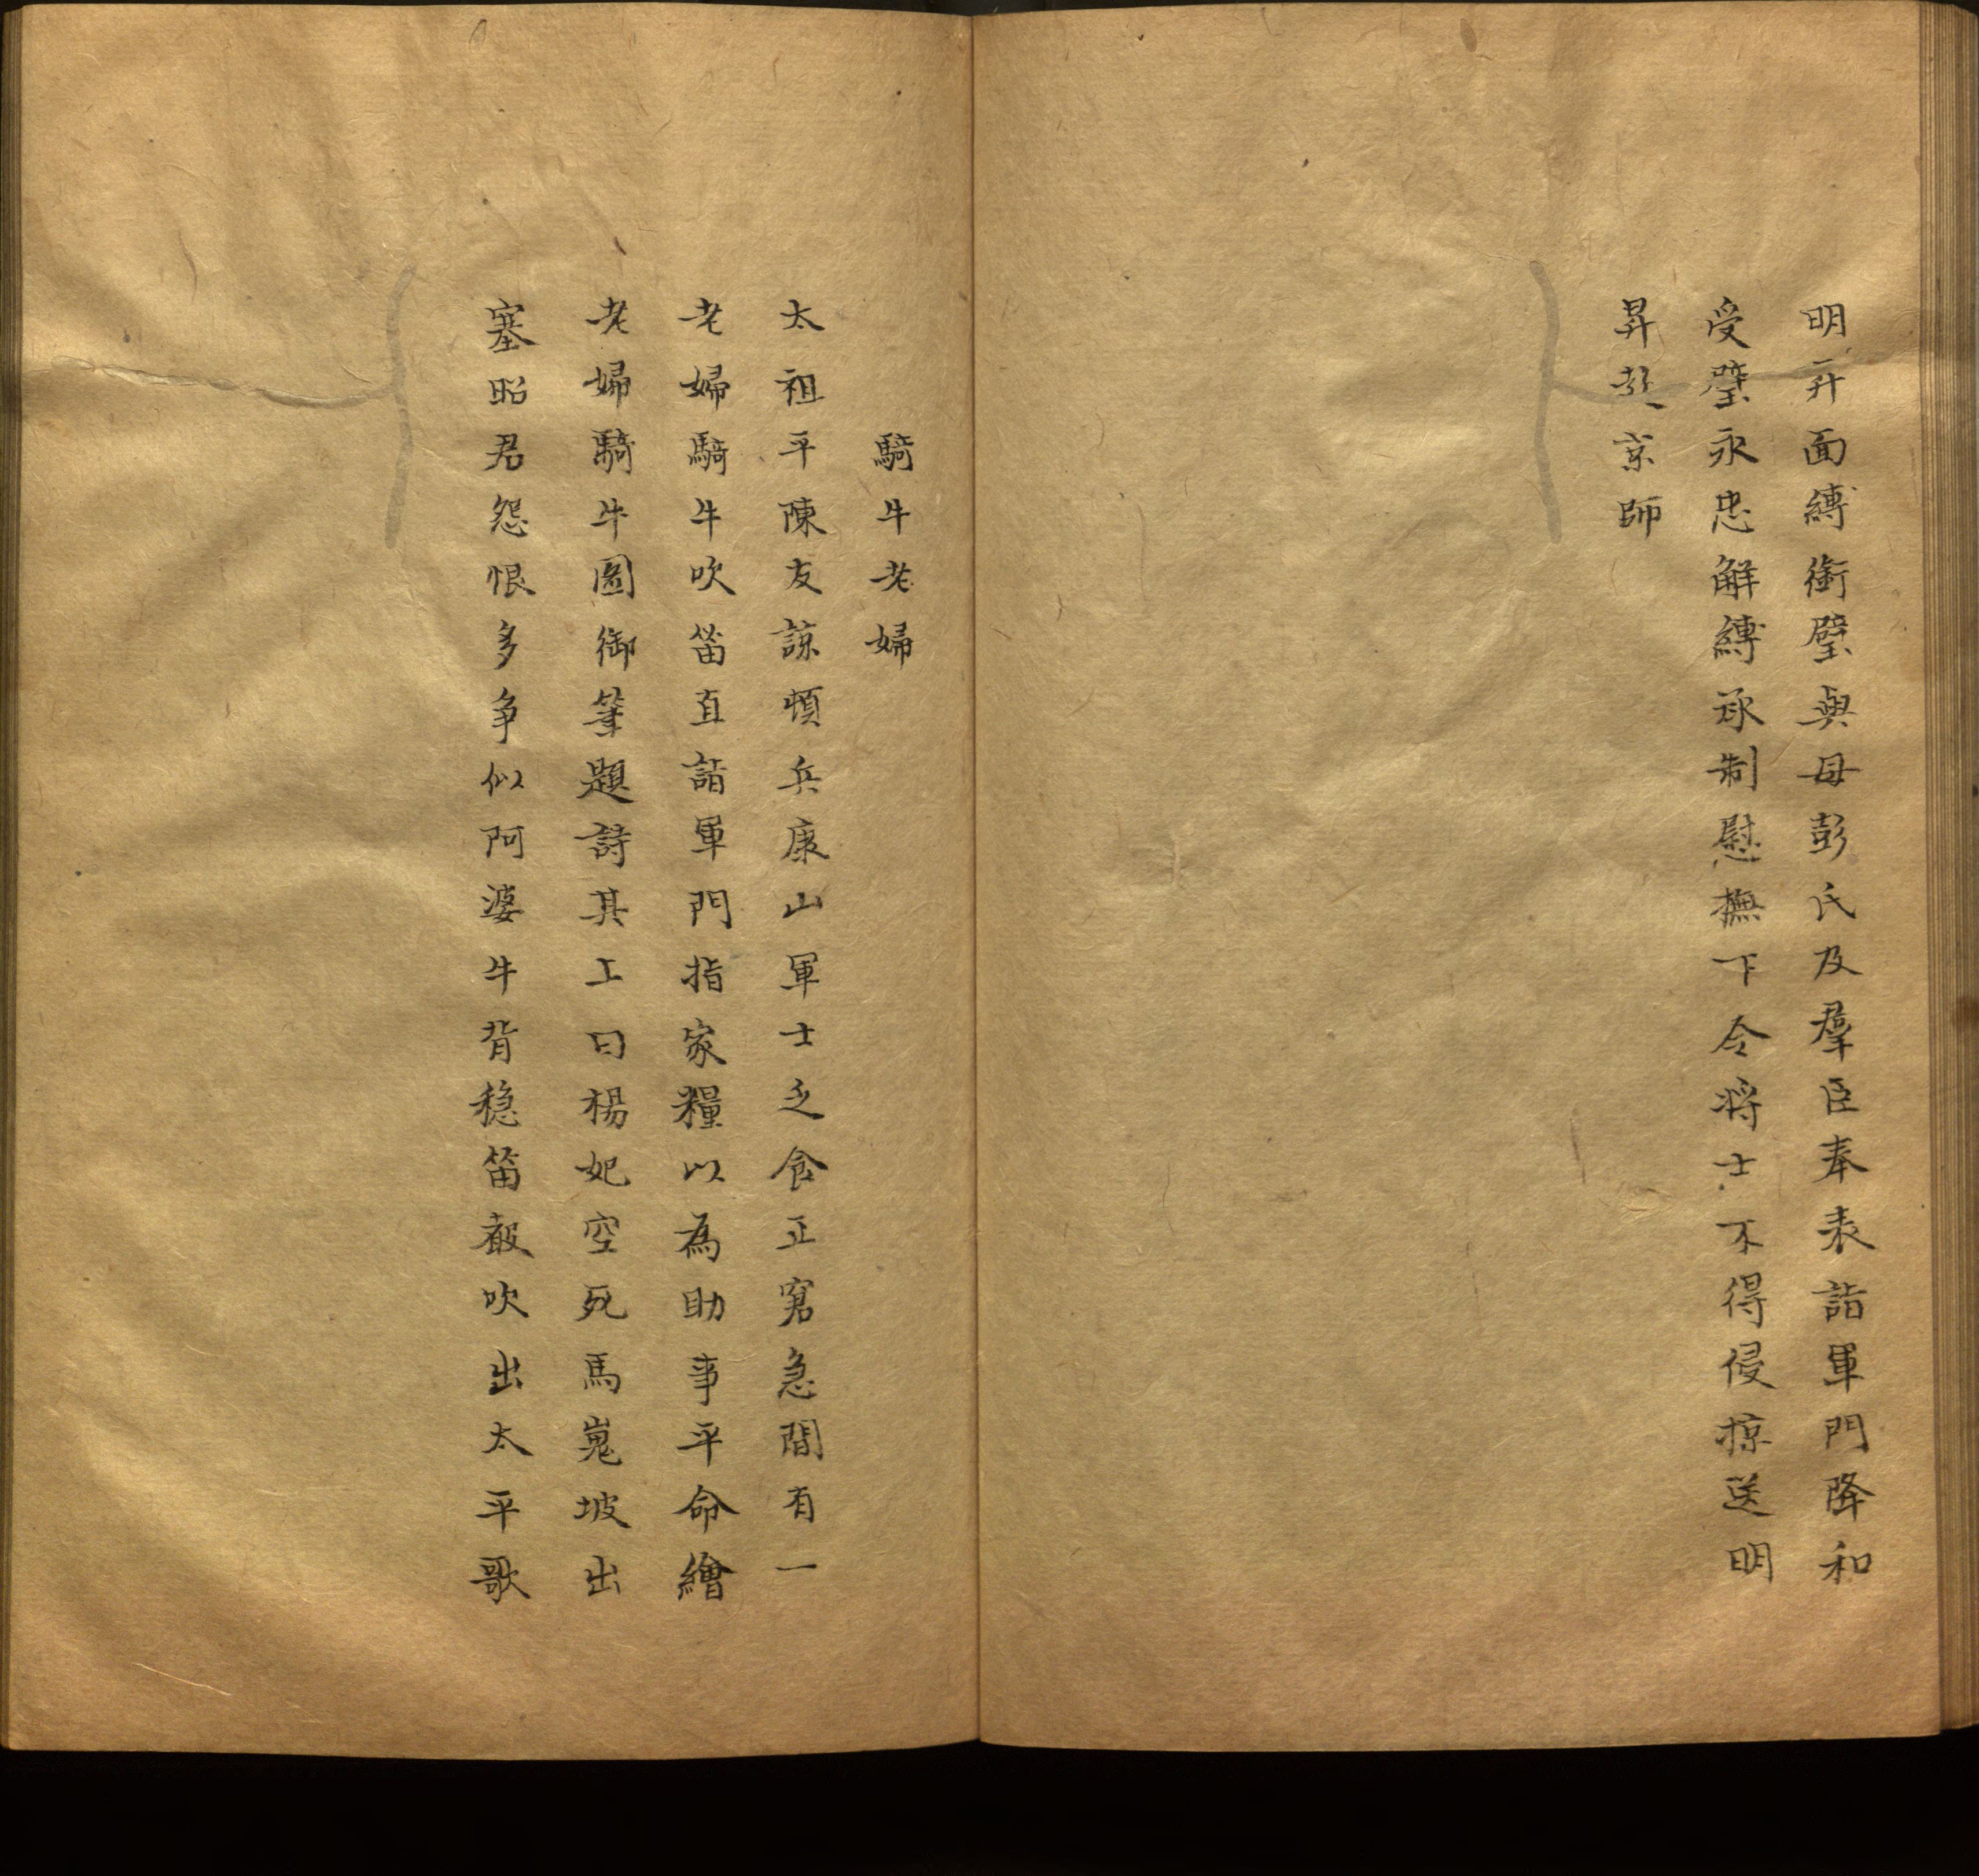 明昇面縛銜璧與母彭氏及羣臣奉表詣軍門降和
受璧永忠解縛承制慰撫下令將士不得侵掠送明
昇赴京師
騎牛老婦
太祖平陳友諒頓兵康山軍士乏食正窘急間有一
老婦騎牛吹笛直詣軍門指家糧以為助事平命繪
老婦騎牛圖御筆題詩其上曰楊妃空死馬嵬坡出
塞昭君怨恨多爭似阿婆牛背穩笛聲吹出太平歌